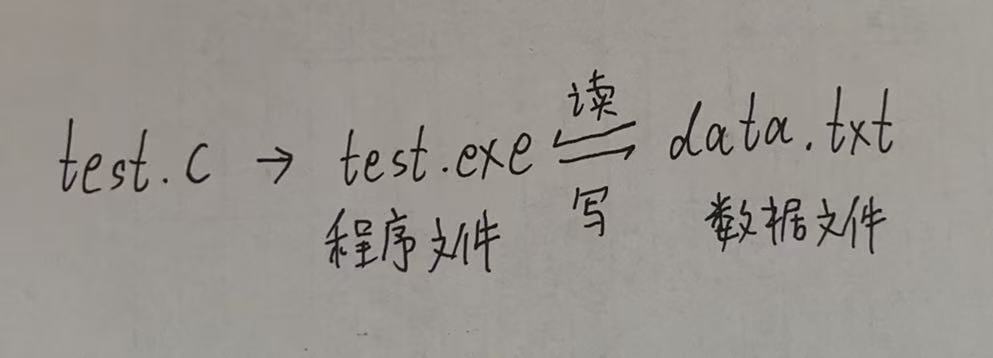 读
test.c → test.exe ⇌ data.txt
写
程序文件 数据文件